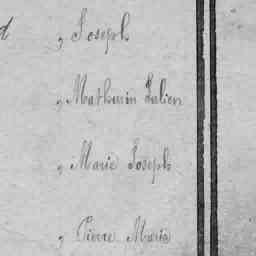 d , Joseph
, Mathurin Julien
, Marie Joseph
, Pierre Marie